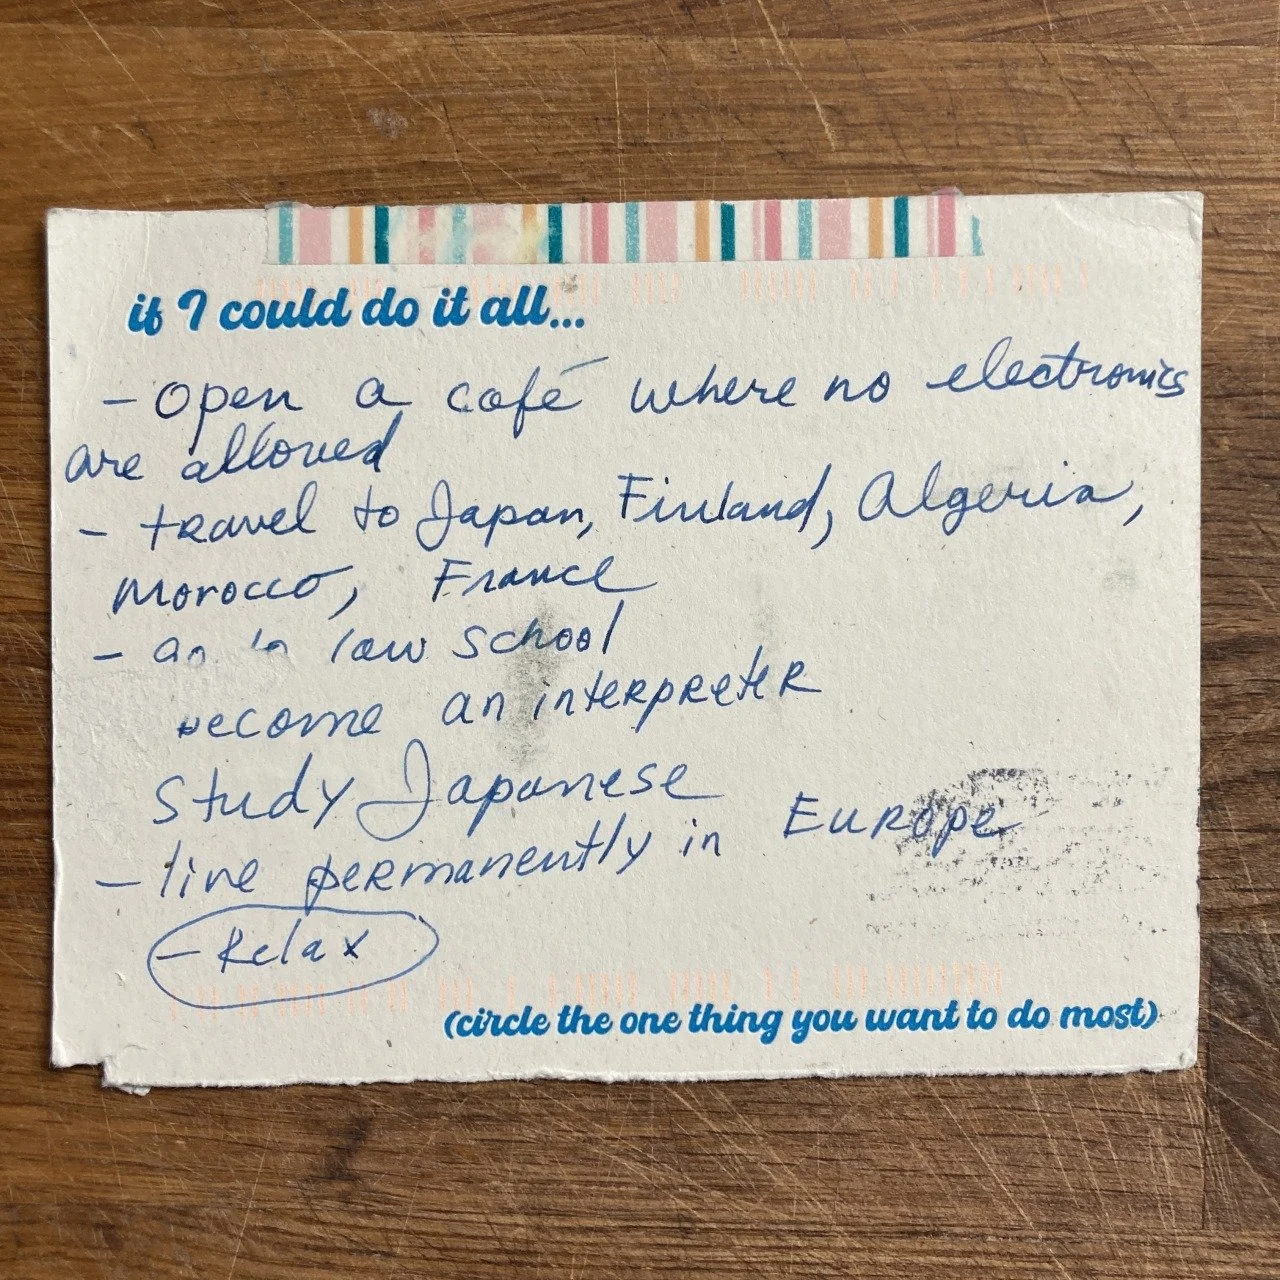 if I could do it all...
- open a café where no electronics
are allowed
- travel to Japan, Finland, Algeria,
Morocco, France
- go to law school
become an interpreter
study Japanese
- live permanently in Europe
- Relax
(circle the one thing you want to do most)